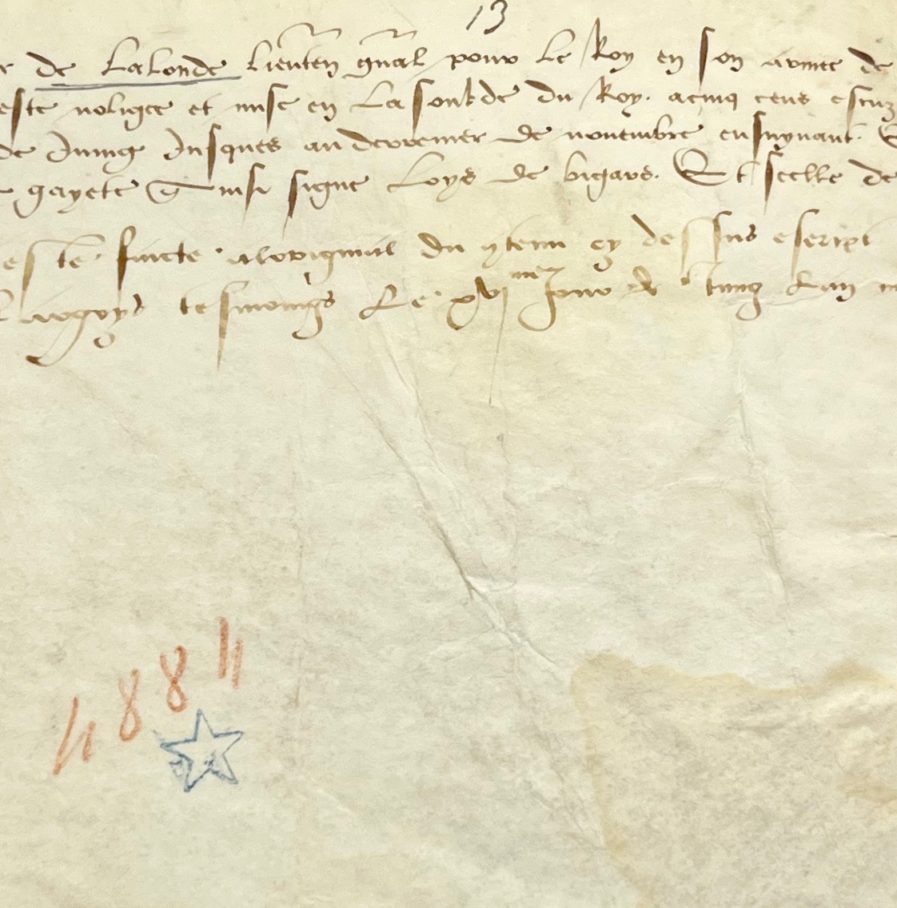 13
de Lalonde lieuten gnal pour le Roy en son armee de
este noligee et mise en la soulde du Roy. acinq cens escuz
de Juing Jusques au dernier de novembre ensuyvant.
gayete signe Loys de bigars. Et scelle de
este faicte aloriginal du contenu cy dessus escript
tesmoings Le xvi me Jour de Juing Lan
4884